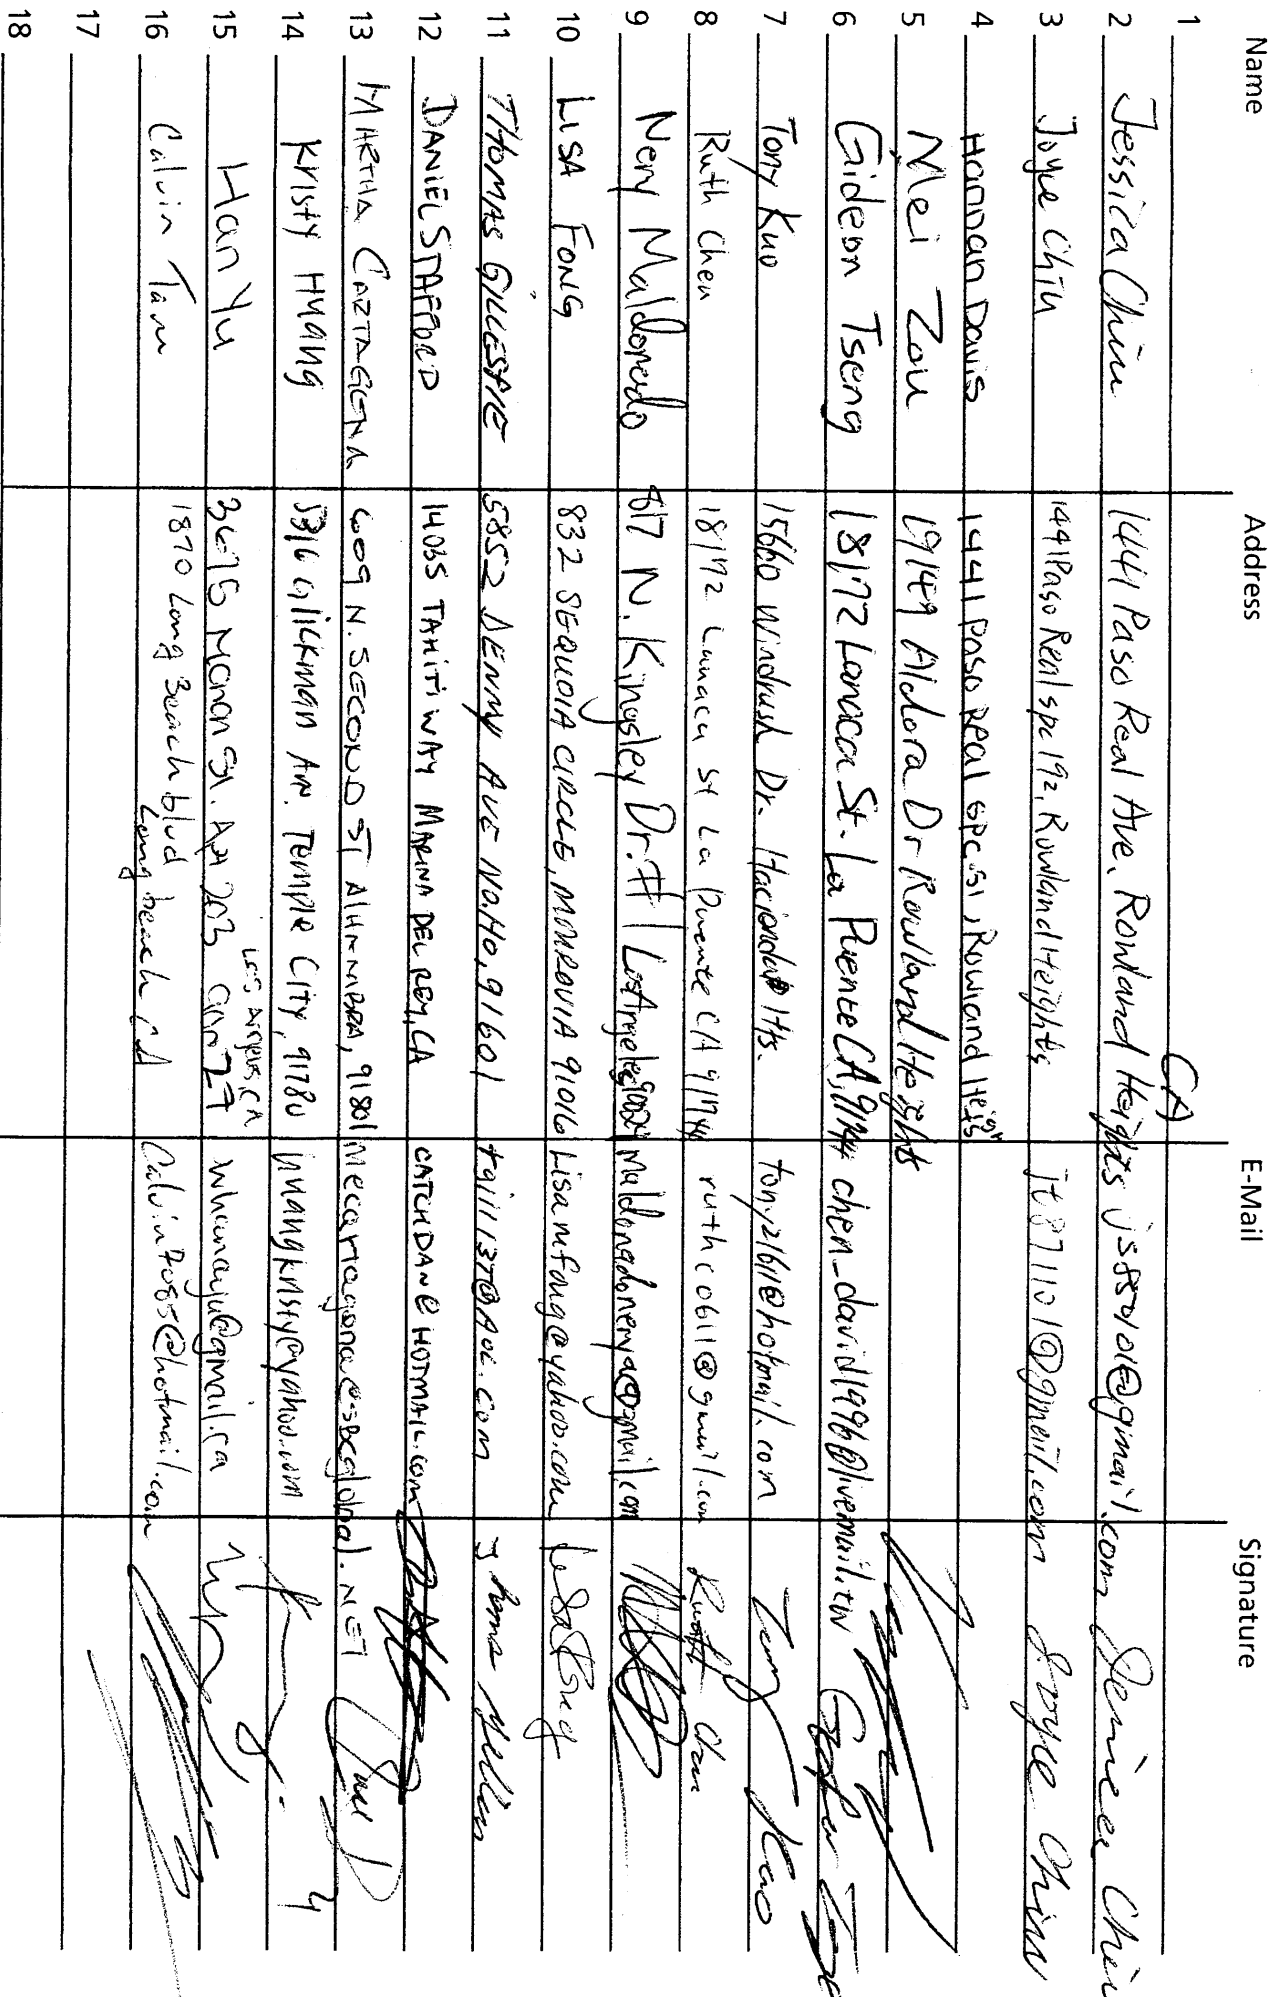 Name Address E-Mail Signature
1
CA
2 Jessica Chiu 1441 Paso Real Ave. Rowland Heights js88010@gmail.com Jessica Chiu
3 Joyce Chiu 1441 Paso Real spc 192, Rowland Heights jt87110@gmail.com Joyce Chiu
4 Hannan Davis 1441 Paso Real spc 51, Rowland Heights
5 Mei Zou 19149 Aldora Dr Rowland Heights
6 Gideon Tseng 18172 Lanacca St. La Puente CA, 91744 chen_david1996@livemail.tw
7 Tony Kuo 15660 Windrush Dr. Hacienda Hts. tony2161@hotmail.com Tony Kuo
8 Ruth Chen 18172 Lanaca St La Puente CA 91744 ruthc0611@gmail.com Ruth Chen
9 Neny Maldonado 817 N. Kingsley Dr. #1 Los Angeles 90029 maldonadoneny@gmail.com
10 LISA FONG 832 SEQUOIA CIRCLE, MONROVIA 91016 Lisamfong@yahoo.com Lisa Fong
11 THOMAS GILLESPIE 5852 DENNY AVE NO. HO, 91601 tgill1137@AOL.com
12 DANIEL STAFFORD 14035 TAHITI WAY MARINA DEL REY, CA CATCHDAN@HOTMAIL.com
13 MARTHA CARTAGENA 609 N. SECOND ST ALHAMBRA, 91801 mecartagena@sbcglobal.NET
14 Kristy Huang 5316 Glickman Av. Temple City, 91780 huangkristy@yahoo.com
Los Angeles, CA
15 Han Yu 3675 Monon St. Apt 203 90027 whanayu@gmail.ca
16 Calvin Tam 1870 Long Beach blvd Calvin7085@hotmail.com
Long beach CA
17
18